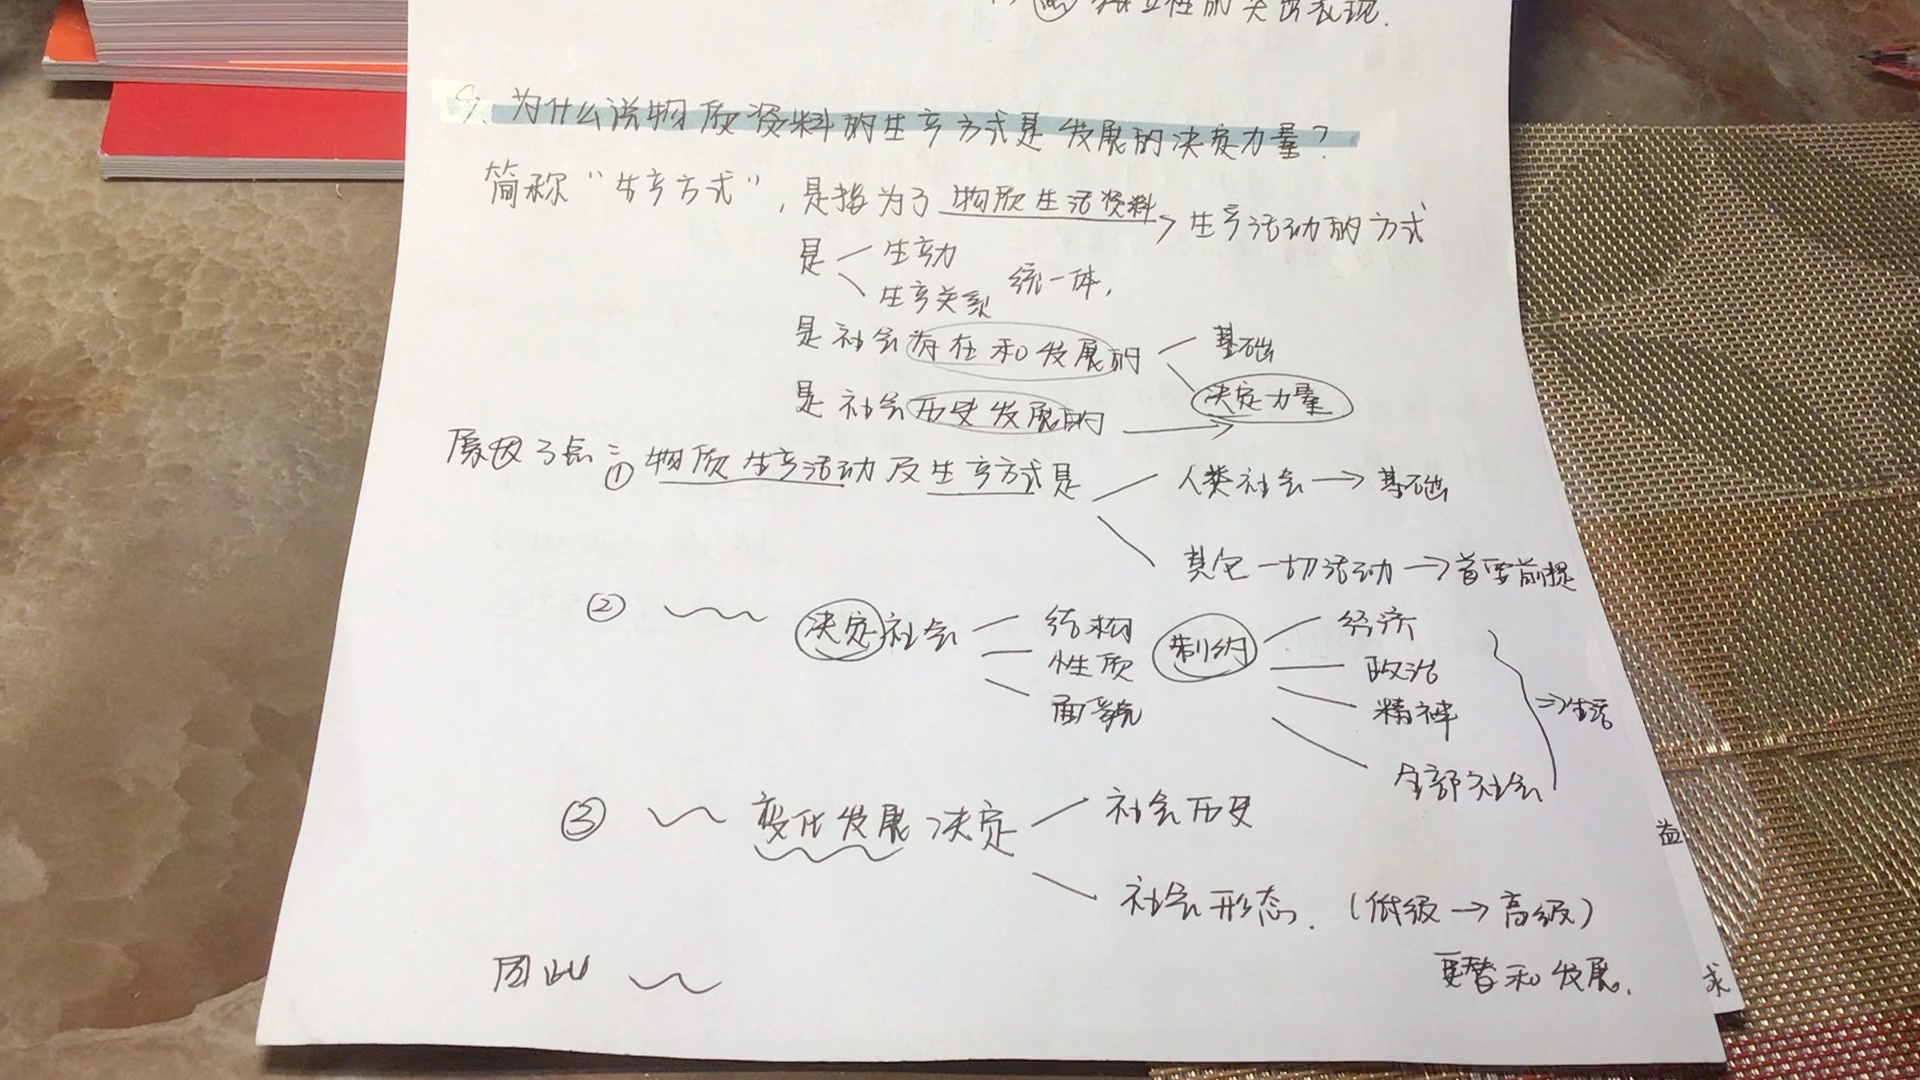 独立性的突出表现.
9. 为什么说物质资料的生产方式是发展的决定力量?
简称“生产方式”, 是指为了物质生活资料→生产活动的方式
是 生产力
生产关系 统一体,
是社会存在和发展的 基础
决定力量
是社会历史发展的 →
原因3点: ① 物质生产活动及生产方式是 人类社会→基础
其它一切活动→首要前提
② 决定社会 结构 制约 经济
性质 政治
面貌 精神
全部社会
⇒生活
③ 变化发展 决定 社会历史
社会形态. (低级→高级)
更替和发展.
因此
益
求